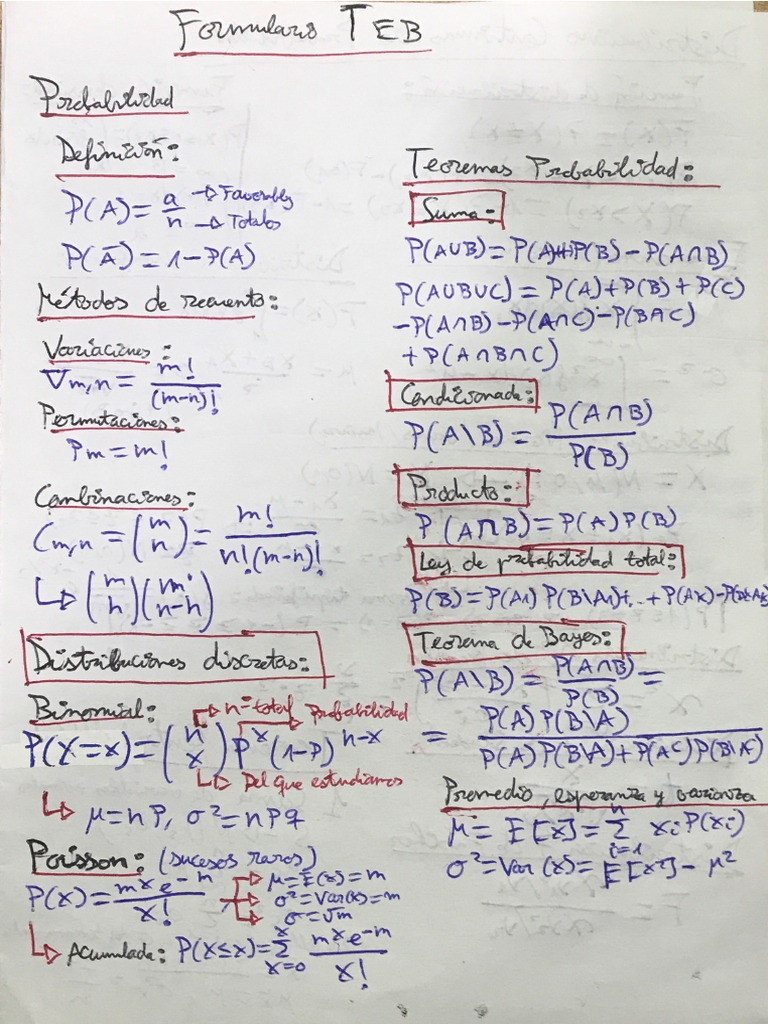 Formulario TEB
Probabilidad
Definición:
P(A) = a/n → Favorables → Totales
P(Ā) = 1 - P(A)
Métodos de recuento:
Variaciones:
Vm,n = m!/(m-n)!
Permutaciones:
Pm = m!
Combinaciones:
Cm,n = (m n) = m!/n!(m-n)!
↳ (m n)(m n-n)
Distribuciones discretas:
Binomial: → n=total → Probabilidad
P(X=x) = (n x) P^x (1-P)^n-x
↳ Del que estudiamos
↳ μ = nP, σ² = nPq
Poisson: (sucesos raros)
P(x) = m^x e^-m / x! → μ = E(x) = m
→ σ² = Var(x) = m
→ σ = √m
↳ Acumulada: P(X≤x) = Σ x=0 x m^x e^-m / x!
Teoremas Probabilidad:
Suma:
P(A∪B) = P(A)+P(B) - P(A∩B)
P(A∪B∪C) = P(A)+P(B)+P(C)
-P(A∩B)-P(A∩C)-P(B∩C)
+P(A∩B∩C)
Condicionada:
P(A\B) = P(A∩B)/P(B)
Producto:
P(A∩B) = P(A)P(B)
Ley de probabilidad total:
P(B) = P(A1) P(B\A1)+...+P(Ak)-P(B\Ak)
Teorema de Bayes:
P(A\B) = P(A∩B)/P(B) =
= P(A)P(B\A) / P(A)P(B\A)+P(AC)P(B\A)
Promedio, esperanza y varianza
μ = E[x] = Σ i=1 n xi P(xi)
σ² = Var(x) = E[x²] - μ²